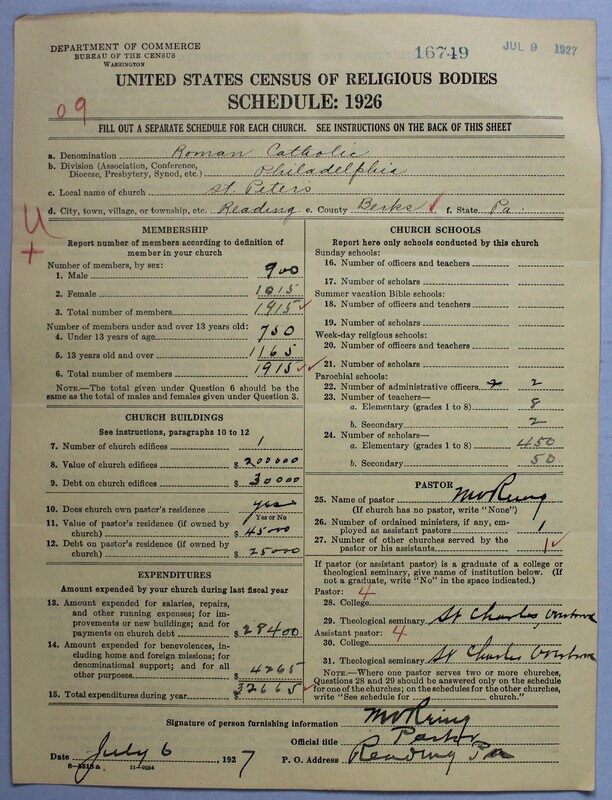 DEPARTMENT OF COMMERCE
BUREAU OF THE CENSUS
WASHINGTON
16749
JUL 9 1927
UNITED STATES CENSUS OF RELIGIOUS BODIES
SCHEDULE: 1926
09
FILL OUT A SEPARATE SCHEDULE FOR EACH CHURCH. SEE INSTRUCTIONS ON THE BACK OF THIS SHEET
a. Denomination Roman Catholic
b. Division (Association, Conference, Diocese, Presbytery, Synod, etc.) Philadelphia
c. Local name of church St. Peters
d. City, town, village, or township, etc. Reading e. County Berks f. State Pa.
MEMBERSHIP
Report number of members according to definition of
member in your church
Number of members, by sex:
1. Male 900
2. Female 1015
3. Total number of members 1915
Number of members under and over 13 years old:
4. Under 13 years of age 750
5. 13 years old and over 1165
6. Total number of members 1915
NOTE.—The total given under Question 6 should be the
same as the total of males and females given under Question 3.
CHURCH BUILDINGS
See instructions, paragraphs 10 to 12
7. Number of church edifices 1
8. Value of church edifices $ 200000
9. Debt on church edifices $ 30000
10. Does church own pastor's residence yes
Yes or No
11. Value of pastor's residence (if owned by
church) $ 45000
12. Debt on pastor's residence (if owned by
church) $ 25000
EXPENDITURES
Amount expended by your church during last fiscal year
13. Amount expended for salaries, repairs,
and other running expenses; for im-
provements or new buildings; and for
payments on church debt $ 28400
14. Amount expended for benevolences, in-
cluding home and foreign missions; for
denominational support; and for all
other purposes 4265
15. Total expenditures during year $ 32665
CHURCH SCHOOLS
Report here only schools conducted by this church
Sunday schools:
16. Number of officers and teachers
17. Number of scholars
Summer vacation Bible schools:
18. Number of officers and teachers
19. Number of scholars
Week-day religious schools:
20. Number of officers and teachers
21. Number of scholars
Parochial schools:
22. Number of administrative officers 2
23. Number of teachers—
a. Elementary (grades 1 to 8) 8
b. Secondary 2
24. Number of scholars—
a. Elementary (grades 1 to 8) 450
b. Secondary 50
PASTOR
25. Name of pastor
(If church has no pastor, write "None")
26. Number of ordained ministers, if any, em-
ployed as assistant pastors 1
27. Number of other churches served by the
pastor or his assistants 1
If pastor (or assistant pastor) is a graduate of a college or
theological seminary, give name of institution below. (If
not a graduate, write "No" in the space indicated.)
Pastor: 4
28. College
29. Theological seminary St Charles Overbrook
Assistant pastor: 4
30. College
31. Theological seminary St Charles Overbrook
NOTE.—Where one pastor serves two or more churches,
Questions 28 and 29 should be answered only on the schedule
for one of the churches; on the schedules for the other churches,
write "See schedule for church."
Signature of person furnishing information
Official title Pastor
Date July 6, 1927 P. O. Address Reading Pa
8-4513a 11-9034